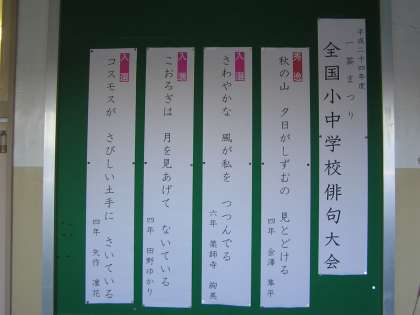 平成二十四年度
一茶まつり
全国小中学校俳句大会
秀逸
秋の山 夕日がしずむの 見とどける
四年 金澤 隼平
入選
さわやかな 風が私を つつんでる
六年 薬師寺 絢美
入選
こおろぎは 月を見あげて ないている
四年 田野ゆかり
入選
コスモスが さびしい土手に さいている
四年 矢作 凜花